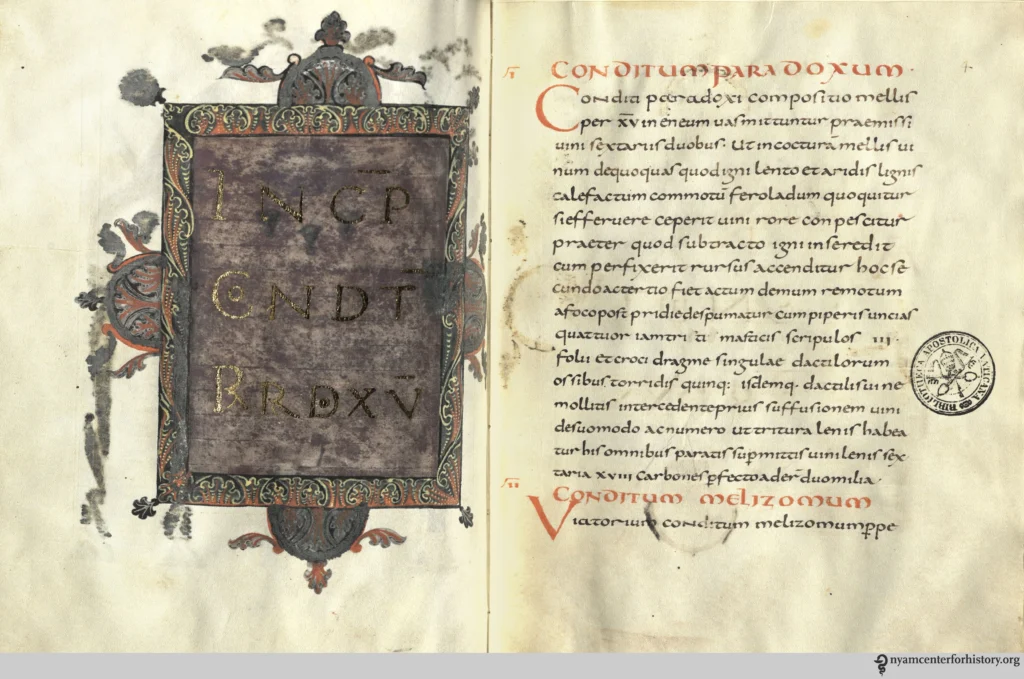 INCP
CONDT
RRDXV
CONDITUM PARADOXUM
Conditi paradoxi compositio mellis
per xv in eneum vas mittuntur praemissi
vini sextariis duobus. Ut in cocturā mellis vi
num dequoquas quod igni lento et aridis lignis
calefactum commotū ferola dum quoquitur
si effervere ceperit vini rore conpescitur
praeter quod subtracto igni in se redit
cum perfixerit rursus accenditur hoc se
cundo ac tertio fiet ac tum demum remotum
a foco post pridie despumatur cum piperis uncias
quattuor iam masticis scripulos iii
folii et croci dragme singulae dactilorum
ossibus torridis quinq; isdemq; dactilis vine
mollitis intercedente prius suffusionem vini
de suo modo ac numero ut tritura lenis habea
tur his omnibus paratis supmittis vini lenis sex
taria xviii carbones pfecto aderr duo milia
CONDITUM MELIZOMUM
Viatorium conditum melizomum ppe
BIBLIOTHECA APOSTOLICA VATICANA
nyamcenterforhistory.org